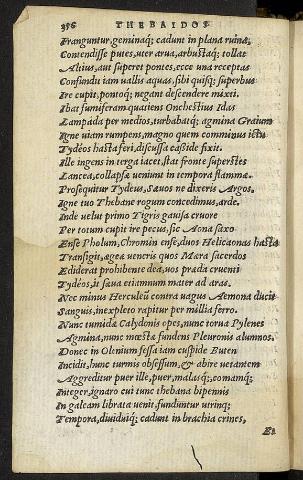 356 THEBAIDOS
Franguntur, geminaq; cadunt in plana ruina,
Contendisse putes, uter arua, arbustaq; tollat
Altius, aut superet pontes, ecce una receptas
Confundit iam uallis aquas, sibi quisq; superbus
Ire cupit, pontoq; negant descendere mixti.
Ibat fumiferam quatiens Onchestius Idas
Lampada per medios, turbabatq; agmina Graium
Igne uiam rumpens, magno quem comminus ictu
Tydeos hasta feri, discussa casside fixit.
Ille ingens in terga iacet, stat fronte superstes
Lancea, collapsæ ueniunt in tempora flammæ.
Prosequitur Tydeus, Sæuos ne dixeris Argos,
Igne tuo Thebane rogum concedimus, arde.
Inde uelut primo Tigris gauisa cruore
Per totum cupit ire pecus, sic Aona saxo
Ense Pholum, Chromin ense, duos Helicaonas hasta
Transigit, ægea ueneris quos Mæra sacerdos
Ediderat prohibente dea, uos præda cruenti
Tydeos, it sæua etiamnum mater ad aras.
Nec minus Herculeũ contra uagus Aemona ducit
Sanguis, inexpleto rapitur per millia ferro.
Nunc tumida Calydonis opes, nunc torua Pylenes
Agmina, nunc mœstæ fundens Pleuronis alumnos.
Donec in Olenium fessa iam cuspide Buten
Incidit, hunc turmis obsessum, & abire uetantem
Aggreditur puer ille, puer, malasq; comamq;
Integer, ignaro cui tunc thebana bipennis
In galeam librata uenit, funduntur utrinq;
Tempora, diuiduiq; cadunt in brachia crines,
Et